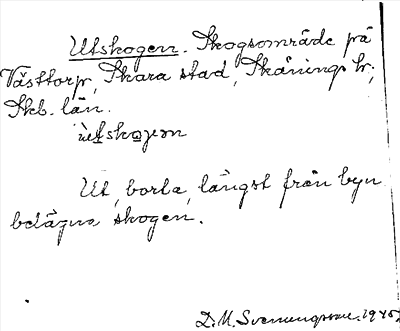 Utskogen. Skogsområde på
Västtorp, Skara stad, Skånings hr,
Skb. län.
ùtskogen
Ut, borta, längst från byn
belägna skogen.
D. U. Svenungsson. 1945